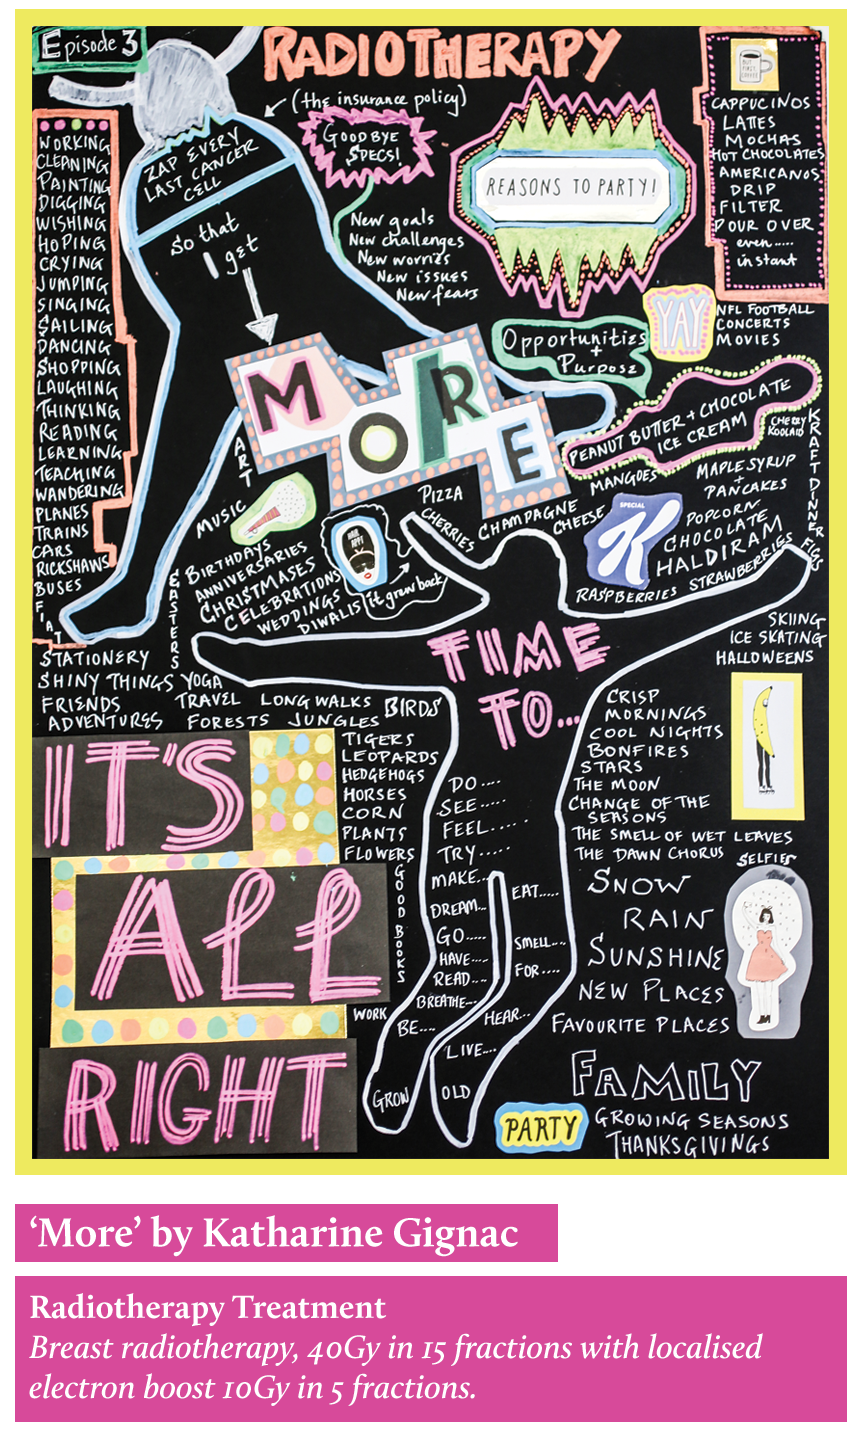 Episode 3
RADIOTHERAPY
(the insurance policy)
GOODBYE
SPECS!
ZAP EVERY
LAST CANCER
CELL
So that
I get
MORE
New goals
New challenges
New worries
New issues
New fears
REASONS TO PARTY!
BUT
FIRST,
COFFEE
CAPPUCINOS
LATTES
MOCHAS
HOT CHOCOLATES
AMERICANOS
DRIP
FILTER
POUR OVER
even.....
instant
WORKING
CLEANING
PAINTING
DIGGING
WISHING
HOPING
CRYING
JUMPING
SINGING
SAILING
DANCING
SHOPPING
LAUGHING
THINKING
READING
LEARNING
TEACHING
WANDERING
PLANES
TRAINS
CARS
RICKSHAWS
BUSES
FIAT
STATIONERY
SHINY THINGS
FRIENDS
ADVENTURES
EASTERS
YOGA
TRAVEL
FORESTS
LONG WALKS
JUNGLES
BIRDS
ART
MUSIC
BIRTHDAYS
ANNIVERSARIES
CHRISTMASES
CELEBRATIONS
WEDDINGS
DIWALIS
it grew back
Opportunities
+
Purpose
YAY
NFL FOOTBALL
CONCERTS
MOVIES
PEANUT BUTTER + CHOCOLATE
ICE CREAM
CHERRY
KOOLAID
KRAFT DINNER
FIGS
MANGOES
MAPLE SYRUP
+
PANCAKES
PIZZA
CHERRIES
CHAMPAGNE
CHEESE
SPECIAL
K
POPCORN
CHOCOLATE
HALDIRAM
RASPBERRIES
STRAWBERRIES
SKIING
ICE SKATING
HALLOWEENS
TIME
TO...
IT'S
ALL
RIGHT
TIGERS
LEOPARDS
HEDGEHOGS
HORSES
CORN
PLANTS
FLOWERS
GOOD BOOKS
WORK
DO....
SEE.....
FEEL.....
TRY.....
MAKE...
DREAM...
GO.....
HAVE....
READ....
BREATHE...
BE....
GROW
EAT.....
SMELL....
FOR....
HEAR...
LIVE....
OLD
CRISP
MORNINGS
COOL NIGHTS
BONFIRES
STARS
THE MOON
CHANGE OF THE
SEASONS
THE SMELL OF WET LEAVES
THE DAWN CHORUS
SELFIES
SNOW
RAIN
SUNSHINE
NEW PLACES
FAVOURITE PLACES
FAMILY
PARTY
GROWING SEASONS
THANKSGIVINGS
‘More’ by Katharine Gignac
Radiotherapy Treatment
Breast radiotherapy, 40Gy in 15 fractions with localised
electron boost 10Gy in 5 fractions.